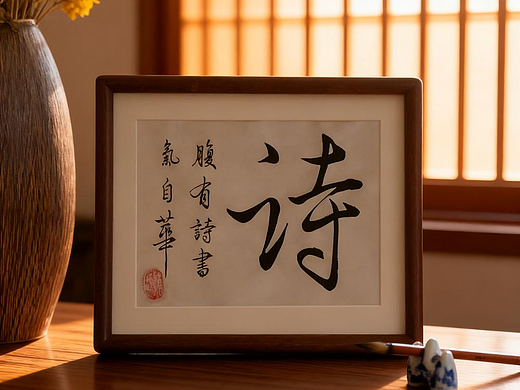 詩
腹有詩書
氣自華